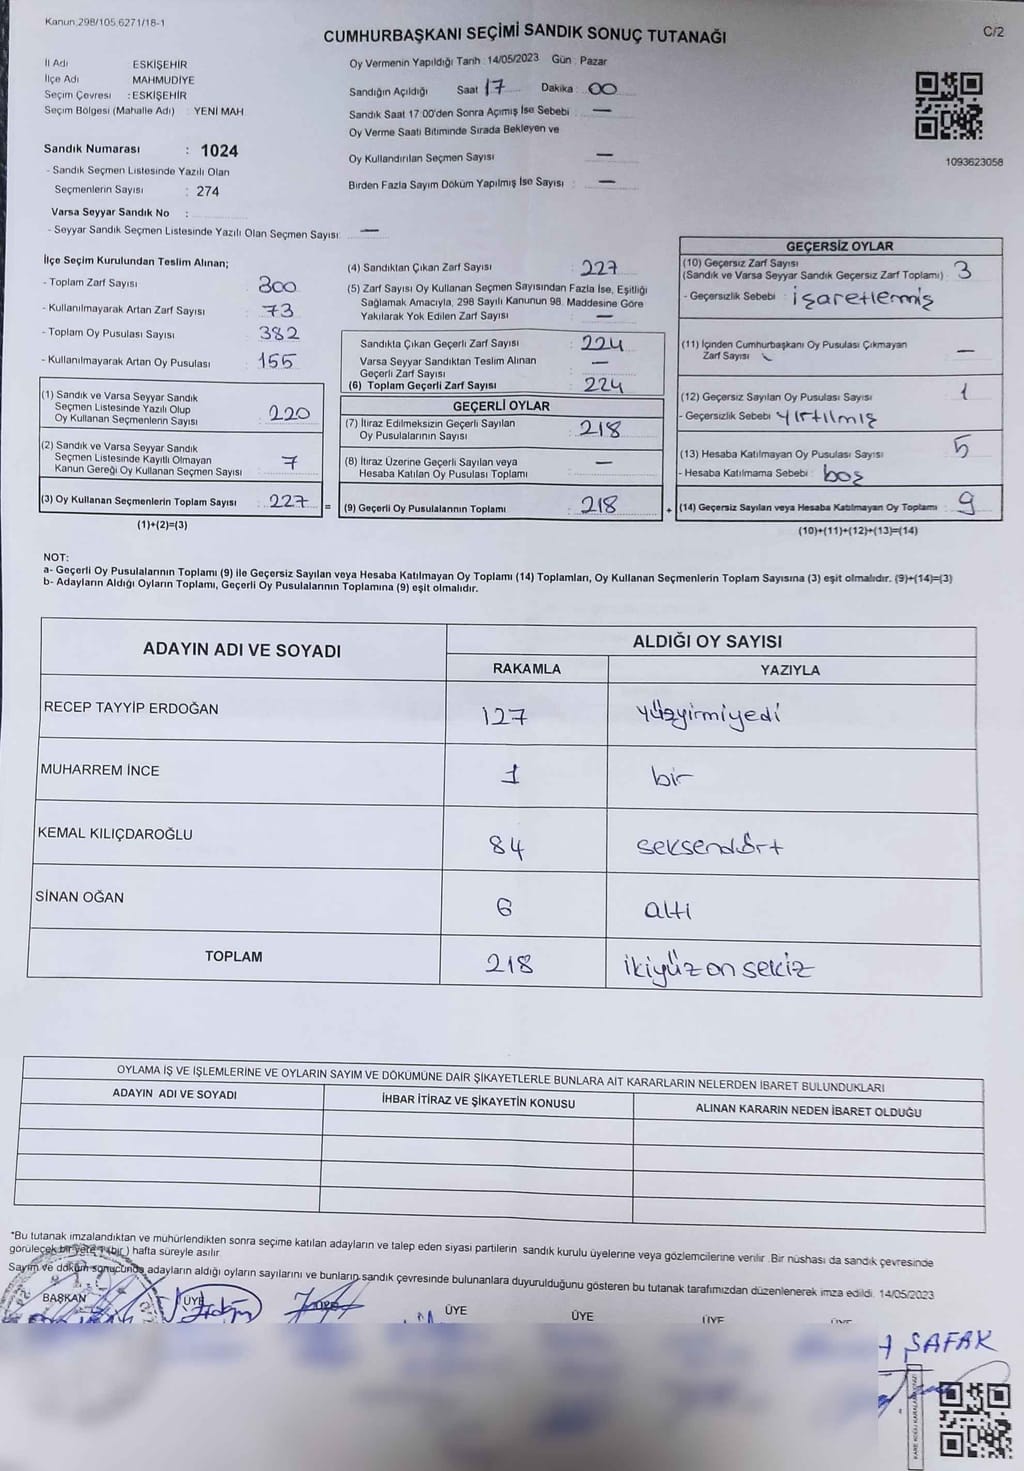 Kanun 298/105 6271/18-1
CUMHURBAŞKANI SEÇİMİ SANDIK SONUÇ TUTANAĞI
C/2
İl Adı ESKİŞEHİR
İlçe Adı MAHMUDİYE
Seçim Çevresi : ESKİŞEHİR
Seçim Bölgesi (Mahalle Adı) : YENİ MAH
Oy Vermenin Yapıldığı Tarih : 14/05/2023 Gün : Pazar
Sandığın Açıldığı Saat 17 Dakika : 00
Sandık Saat 17:00'den Sonra Açımış İse Sebebi : —
Oy Verme Saati Bitiminde Sırada Bekleyen ve
Oy Kullandırılan Seçmen Sayısı —
Birden Fazla Sayım Döküm Yapılmış İse Sayısı : —
1093623058
Sandık Numarası : 1024
- Sandık Seçmen Listesinde Yazılı Olan
Seçmenlerin Sayısı : 274
Varsa Seyyar Sandık No :
- Seyyar Sandık Seçmen Listesinde Yazılı Olan Seçmen Sayısı: —
İlçe Seçim Kurulundan Teslim Alınan;
- Toplam Zarf Sayısı : 300
- Kullanılmayarak Artan Zarf Sayısı : 73
- Toplam Oy Pusulası Sayısı : 382
- Kullanılmayarak Artan Oy Pusulası : 155
(1) Sandık ve Varsa Seyyar Sandık
Seçmen Listesinde Yazılı Olup
Oy Kullanan Seçmenlerin Sayısı : 220
(2) Sandık ve Varsa Seyyar Sandık
Seçmen Listesinde Kayıtlı Olmayan
Kanun Gereği Oy Kullanan Seçmen Sayısı : 7
(3) Oy Kullanan Seçmenlerin Toplam Sayısı : 227
(1)+(2)=(3)
(4) Sandıktan Çıkan Zarf Sayısı : 227
(5) Zarf Sayısı Oy Kullanan Seçmen Sayısından Fazla İse, Eşitliği
Sağlamak Amacıyla, 298 Sayılı Kanunun 98. Maddesine Göre
Yakılarak Yok Edilen Zarf Sayısı : —
Sandıkta Çıkan Geçerli Zarf Sayısı : 224
Varsa Seyyar Sandıktan Teslim Alınan
Geçerli Zarf Sayısı : —
(6) Toplam Geçerli Zarf Sayısı : 224
GEÇERLİ OYLAR
(7) İtiraz Edilmeksizin Geçerli Sayılan
Oy Pusulalarının Sayısı : 218
(8) İtiraz Üzerine Geçerli Sayılan veya
Hesaba Katılan Oy Pusulası Toplamı : —
= (9) Geçerli Oy Pusulalarının Toplamı : 218
GEÇERSİZ OYLAR
(10) Geçersiz Zarf Sayısı
(Sandık ve Varsa Seyyar Sandık Geçersiz Zarf Toplamı) : 3
- Geçersizlik Sebebi : işaretlemiş
(11) İçinden Cumhurbaşkanı Oy Pusulası Çıkmayan
Zarf Sayısı —
(12) Geçersiz Sayılan Oy Pusulası Sayısı 1
- Geçersizlik Sebebi yırtılmış
(13) Hesaba Katılmayan Oy Pusulası Sayısı 5
- Hesaba Katılmama Sebebi : boş
+ (14) Geçersiz Sayılan veya Hesaba Katılmayan Oy Toplamı : 9
(10)+(11)+(12)+(13)=(14)
NOT:
a- Geçerli Oy Pusulalarının Toplamı (9) ile Geçersiz Sayılan veya Hesaba Katılmayan Oy Toplamı (14) Toplamları, Oy Kullanan Seçmenlerin Toplam Sayısına (3) eşit olmalıdır. (9)+(14)=(3)
b- Adayların Aldığı Oyların Toplamı, Geçerli Oy Pusulalarının Toplamına (9) eşit olmalıdır.
ADAYIN ADI VE SOYADI
ALDIĞI OY SAYISI
RAKAMLA YAZIYLA
RECEP TAYYİP ERDOĞAN 127 yüzyirmiyedi
MUHARREM İNCE 1 bir
KEMAL KILIÇDAROĞLU 84 seksendört
SİNAN OĞAN 6 altı
TOPLAM 218 ikiyüz on sekiz
OYLAMA İŞ VE İŞLEMLERİNE VE OYLARIN SAYIM VE DÖKÜMÜNE DAİR ŞİKAYETLERLE BUNLARA AİT KARARLARIN NELERDEN İBARET BULUNDUKLARI
ADAYIN ADI VE SOYADI İHBAR İTİRAZ VE ŞİKAYETİN KONUSU ALINAN KARARIN NEDEN İBARET OLDUĞU
*Bu tutanak imzalandıktan ve mühürlendikten sonra seçime katılan adayların ve talep eden siyasi partilerin sandık kurulu üyelerine veya gözlemcilerine verilir. Bir nüshası da sandık çevresinde
görülecek bir yere 1 (bir) hafta süreyle asılır.
Sayım ve döküm sonucunda adayların aldığı oyların sayılarını ve bunların sandık çevresinde bulunanlara duyurulduğunu gösteren bu tutanak tarafımızdan düzenlenerek imza edildi. 14/05/2023
BAŞKAN ÜYE ÜYE ÜYE ÜYE
ŞAFAK